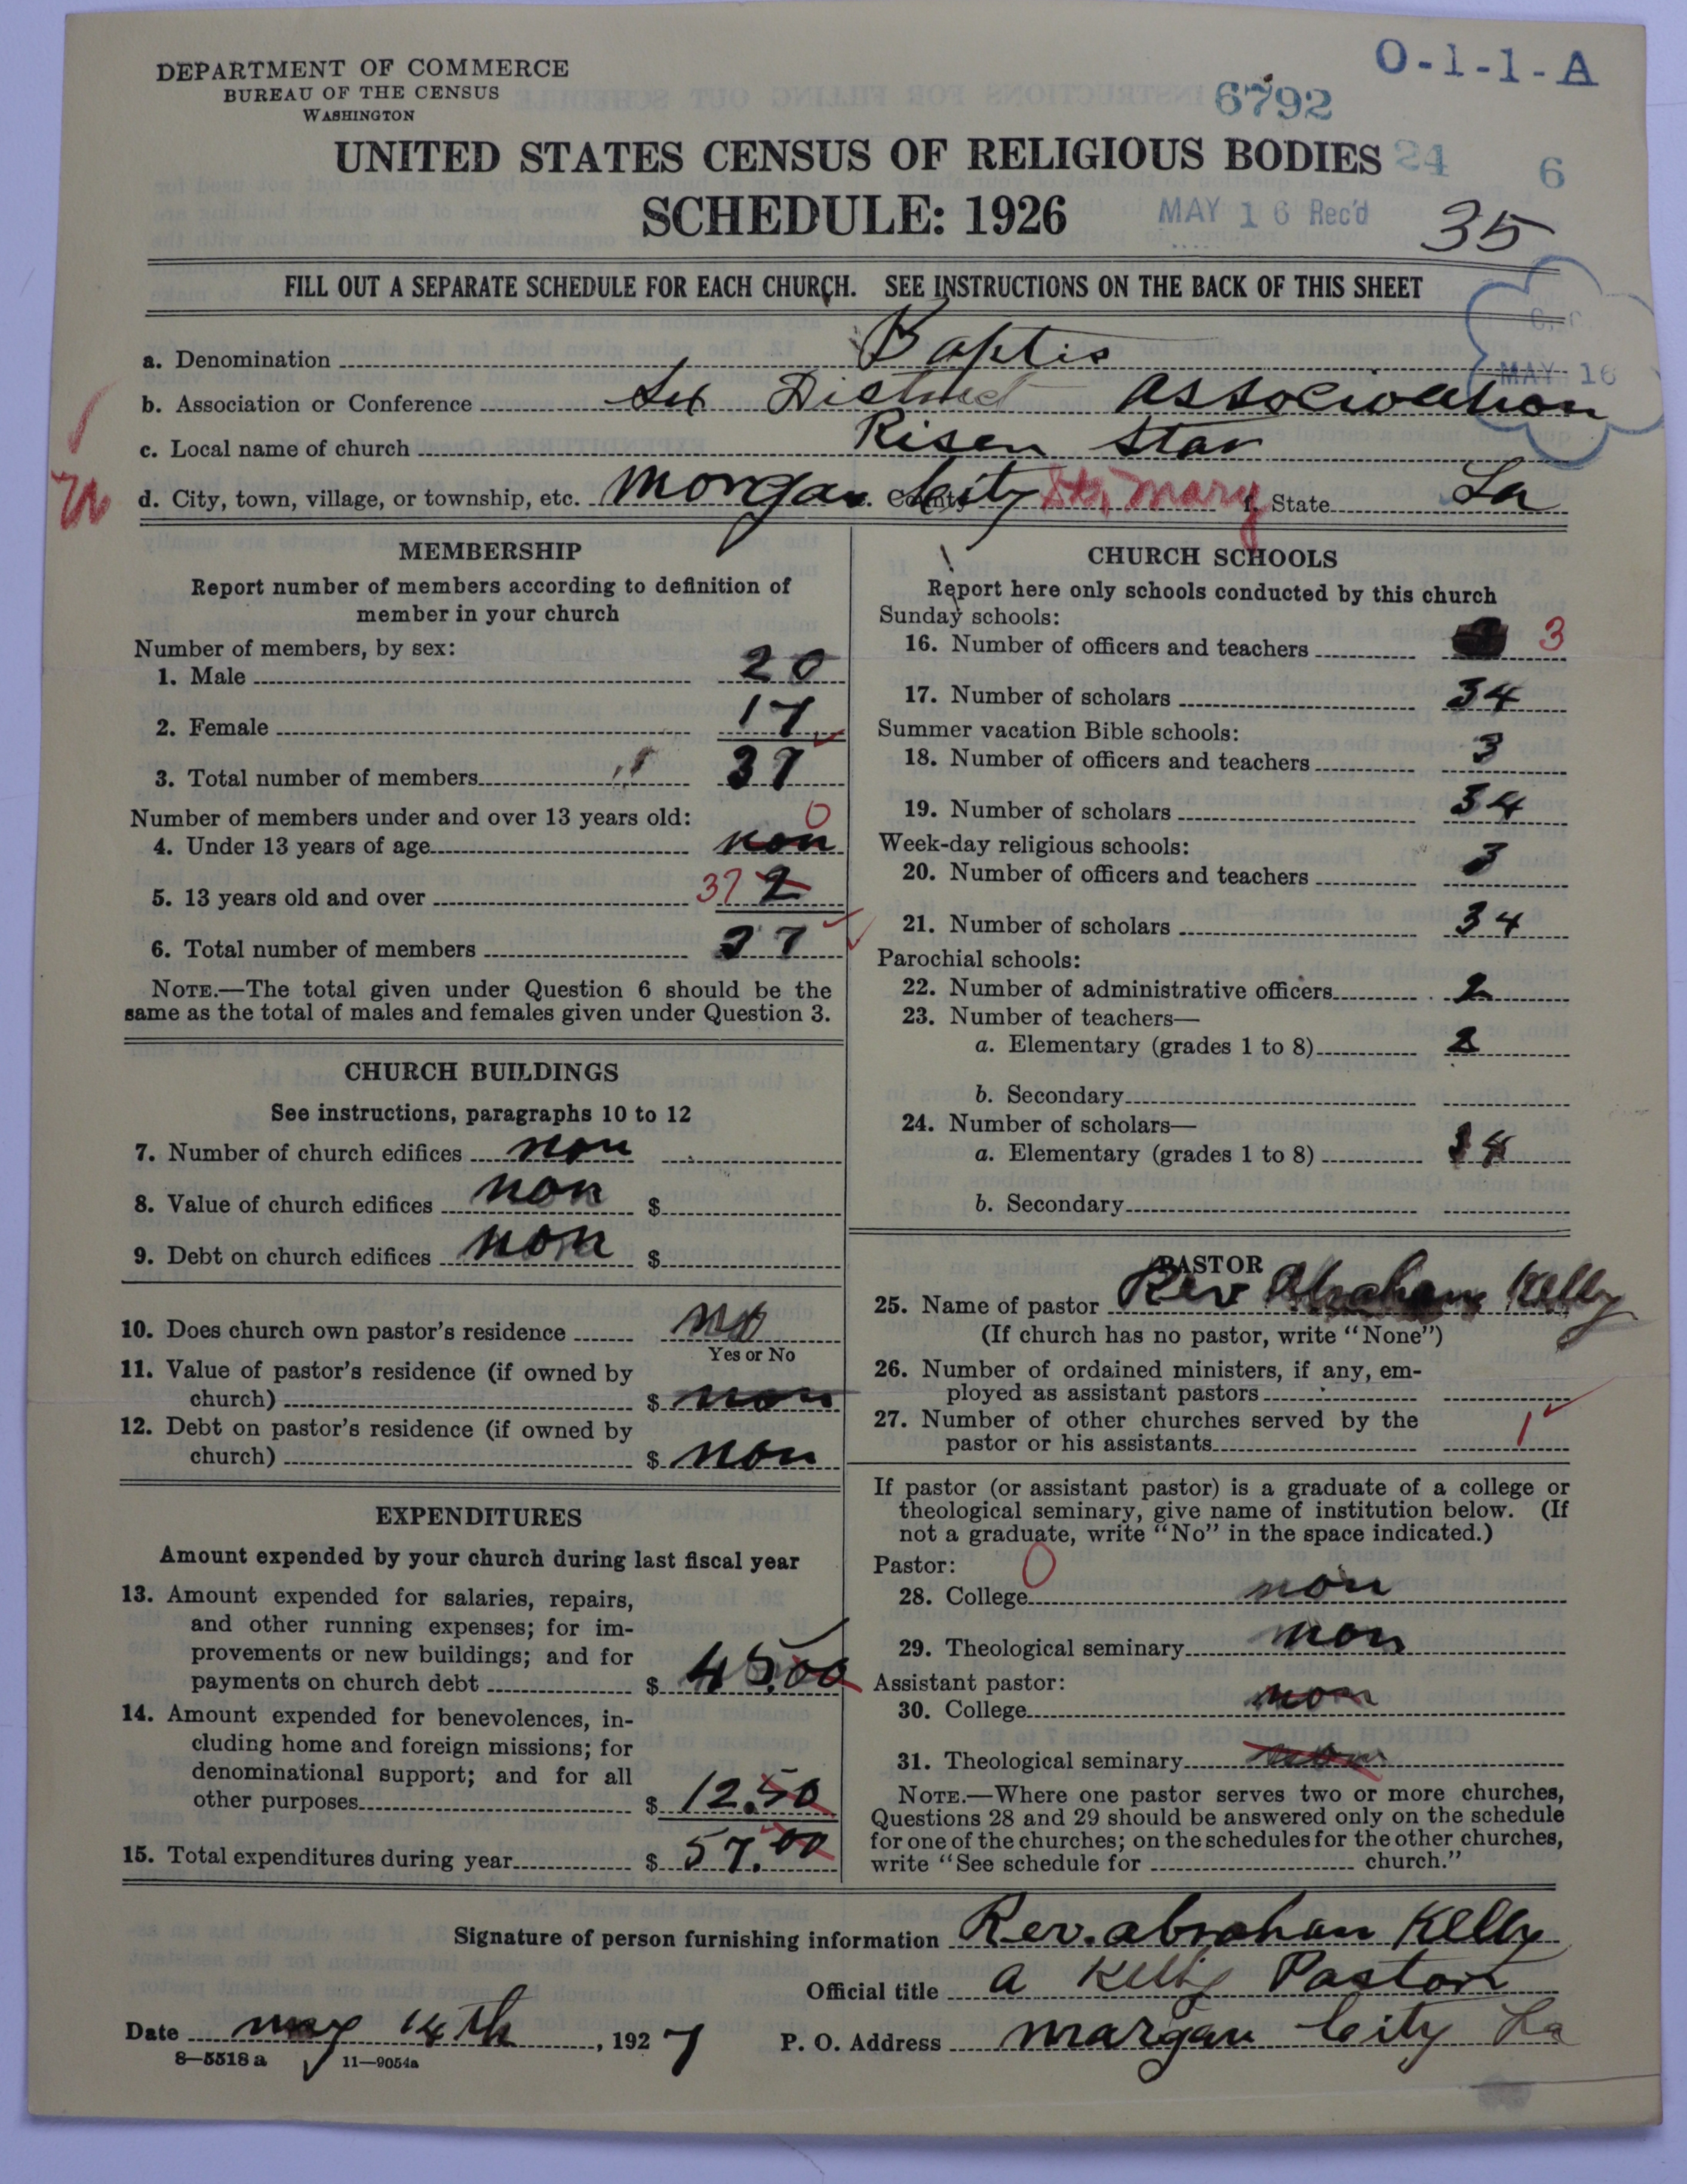 DEPARTMENT OF COMMERCE
BUREAU OF THE CENSUS
WASHINGTON
O-1-1-A
6792
UNITED STATES CENSUS OF RELIGIOUS BODIES
24 6
SCHEDULE: 1926
MAY 16 Rec'd
35
FILL OUT A SEPARATE SCHEDULE FOR EACH CHURCH. SEE INSTRUCTIONS ON THE BACK OF THIS SHEET
MAY 16
a. Denomination Baptis
b. Association or Conference District Association
c. Local name of church Risen Star
d. City, town, village, or township, etc. Morgan City e. County St. Mary f. State La
MEMBERSHIP
Report number of members according to definition of
member in your church
Number of members, by sex:
1. Male 20
2. Female 17
3. Total number of members 37
Number of members under and over 13 years old:
0
4. Under 13 years of age non
5. 13 years old and over 37 2
6. Total number of members 37
NOTE.—The total given under Question 6 should be the
same as the total of males and females given under Question 3.
CHURCH BUILDINGS
See instructions, paragraphs 10 to 12
7. Number of church edifices non
8. Value of church edifices non $
9. Debt on church edifices non $
10. Does church own pastor's residence no
Yes or No
11. Value of pastor's residence (if owned by
church) $ non
12. Debt on pastor's residence (if owned by
church) $ non
EXPENDITURES
Amount expended by your church during last fiscal year
13. Amount expended for salaries, repairs,
and other running expenses; for im-
provements or new buildings; and for
payments on church debt $ 45.00
14. Amount expended for benevolences, in-
cluding home and foreign missions; for
denominational support; and for all
other purposes $ 12.50
15. Total expenditures during year $ 57.00
CHURCH SCHOOLS
Report here only schools conducted by this church
Sunday schools:
16. Number of officers and teachers 3
17. Number of scholars 34
Summer vacation Bible schools:
18. Number of officers and teachers 3
19. Number of scholars 34
Week-day religious schools:
20. Number of officers and teachers 3
21. Number of scholars 34
Parochial schools:
22. Number of administrative officers 2
23. Number of teachers—
a. Elementary (grades 1 to 8) 2
b. Secondary
24. Number of scholars—
a. Elementary (grades 1 to 8)
b. Secondary
PASTOR
25. Name of pastor Rev Abraham Kelly
(If church has no pastor, write "None")
26. Number of ordained ministers, if any, em-
ployed as assistant pastors
27. Number of other churches served by the
pastor or his assistants 1
If pastor (or assistant pastor) is a graduate of a college or
theological seminary, give name of institution below. (If
not a graduate, write "No" in the space indicated.)
Pastor: 0
28. College non
29. Theological seminary non
Assistant pastor:
30. College non
31. Theological seminary non
NOTE.—Where one pastor serves two or more churches,
Questions 28 and 29 should be answered only on the schedule
for one of the churches; on the schedules for the other churches,
write "See schedule for church."
Signature of person furnishing information Rev. abrahan Kelly
Official title a Kelly Pastor
Date may 14th, 1927
P. O. Address Margan City La
8-5518 a 11-9054a